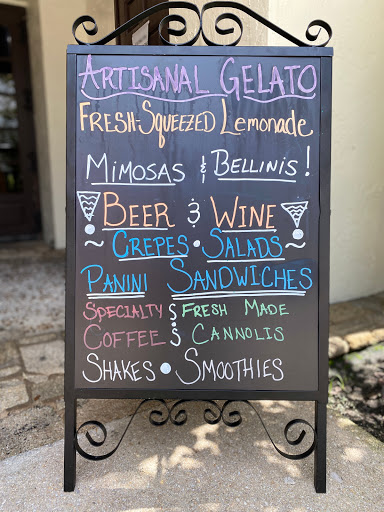 ARTISANAL GELATO
FRESH-SQUEEZED Lemonade
MIMOSAS & BELLINIS!
BEER & WINE
CREPES • SALADS
PANINI SANDWICHES
SPECIALTY & FRESH MADE
COFFEE & CANNOLIS
SHAKES • SMOOTHIES